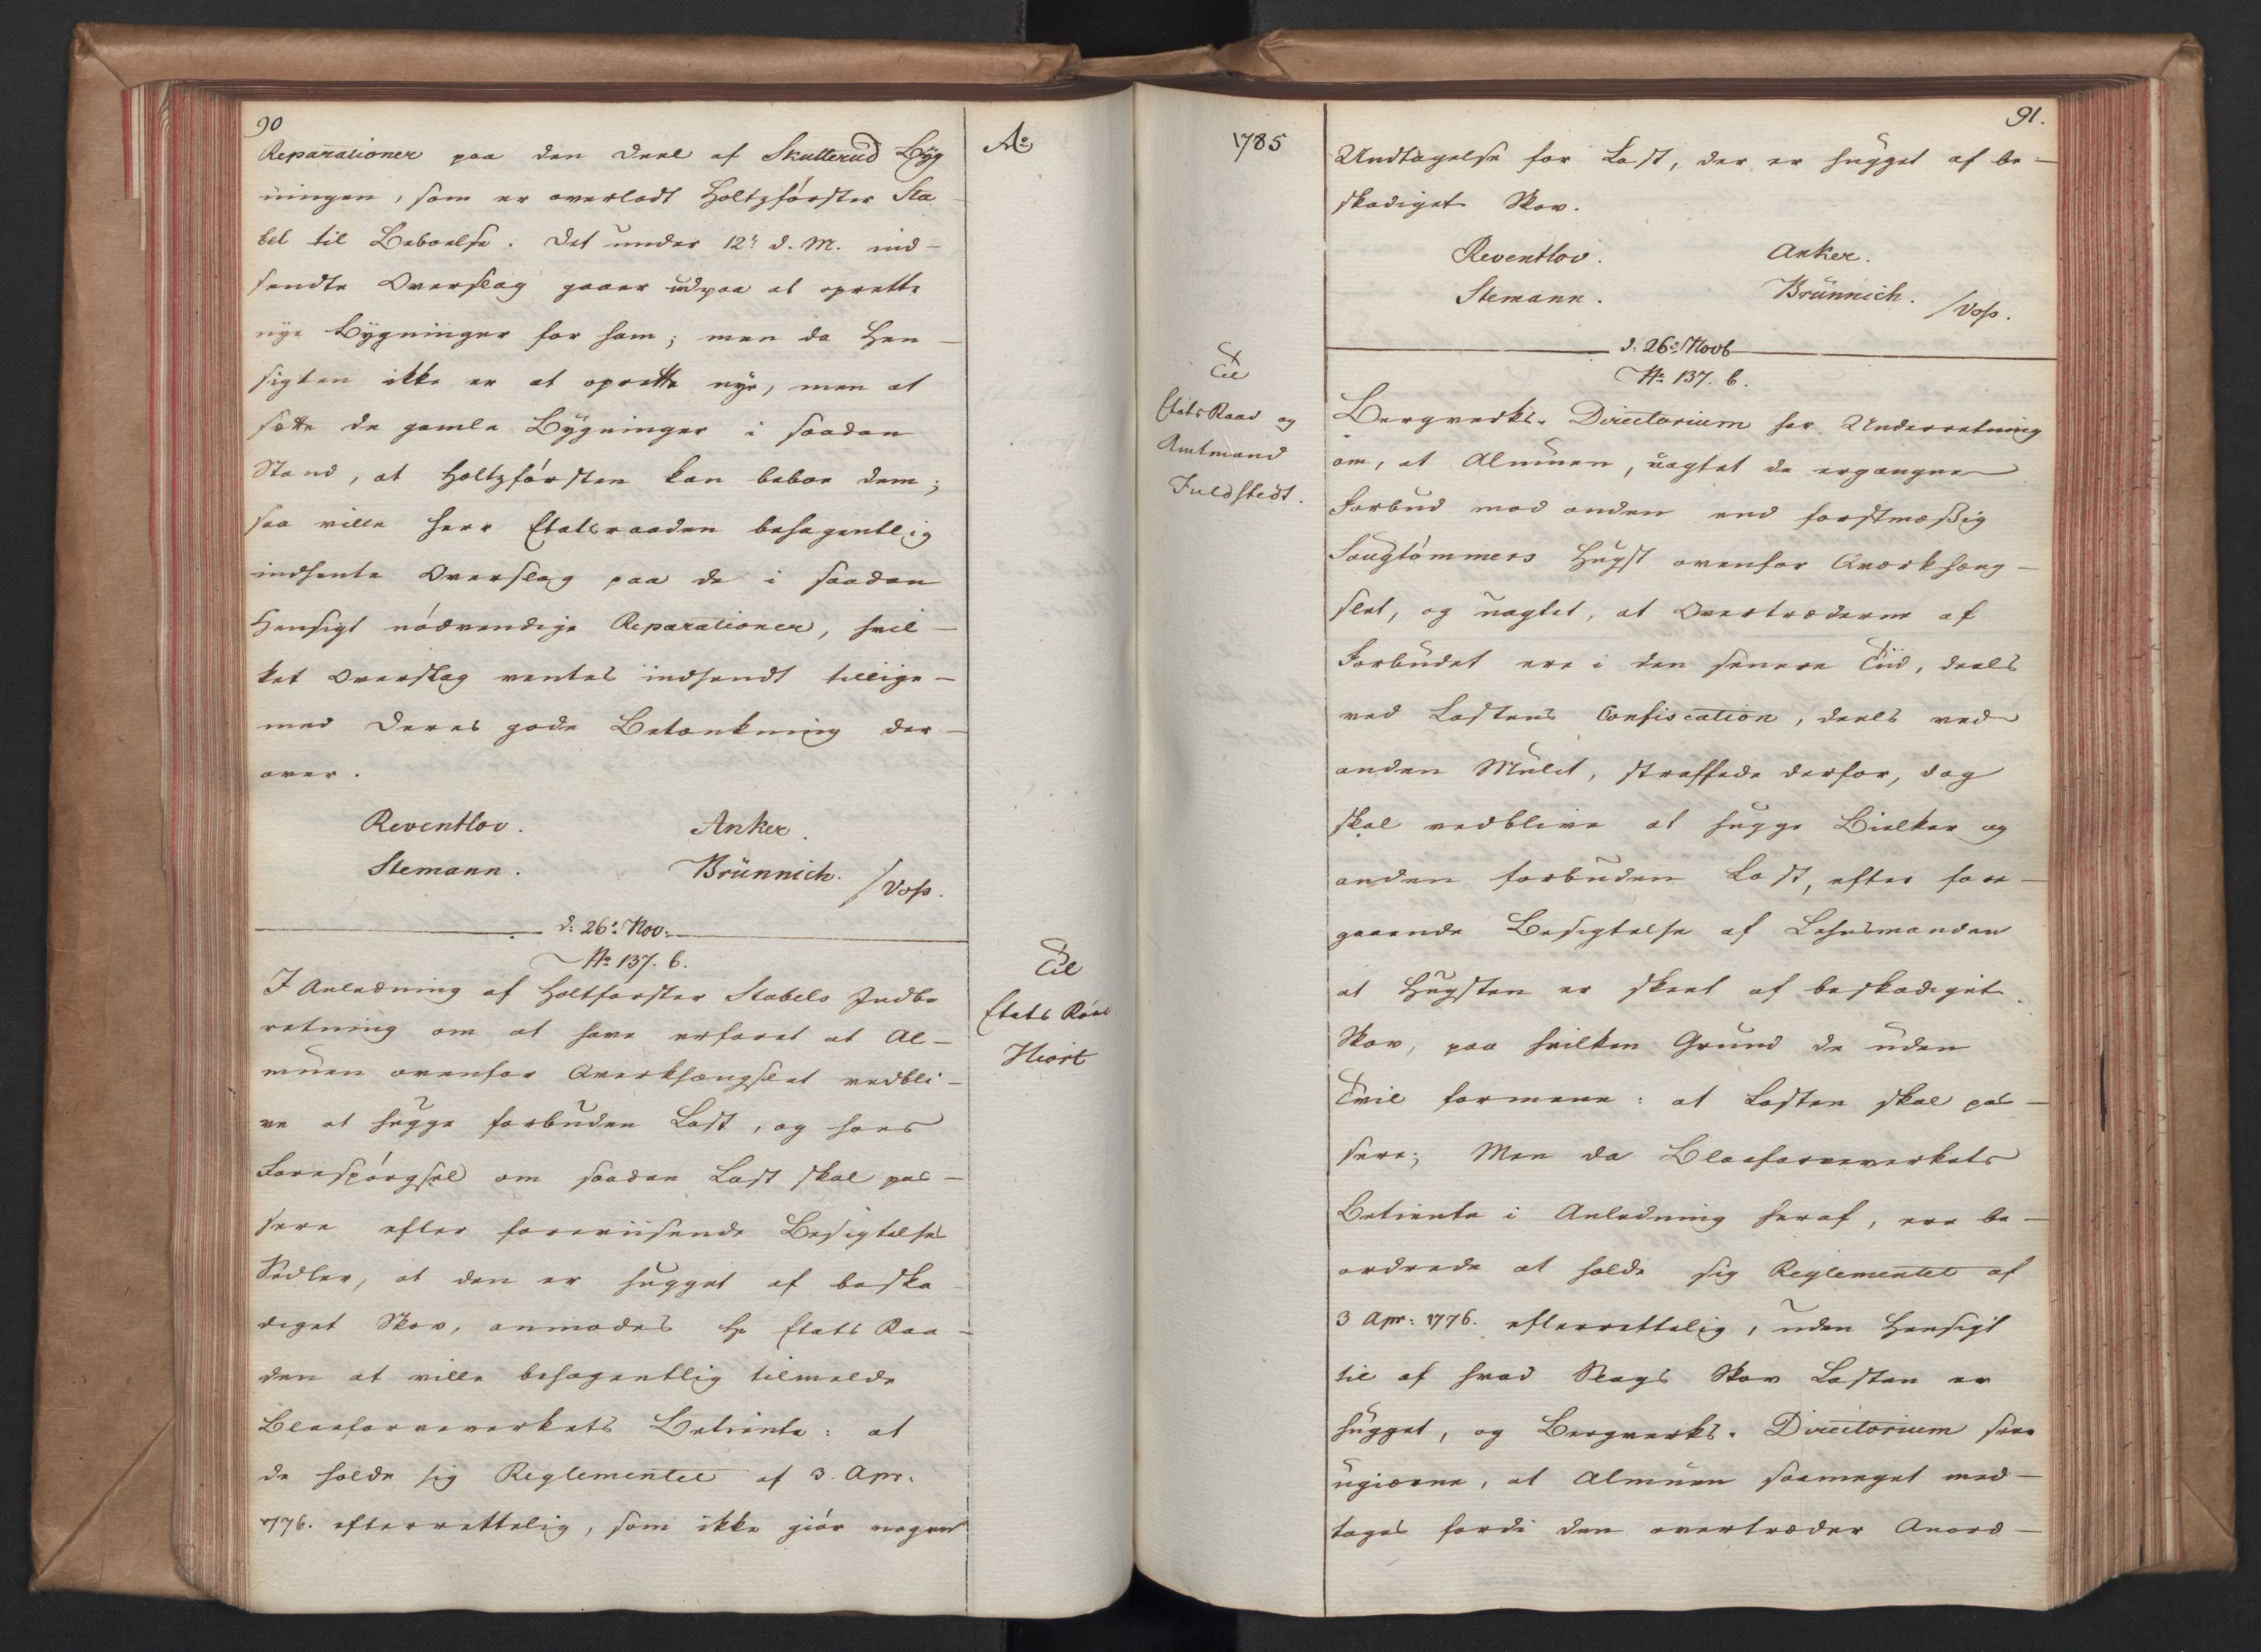 90
Aō
Reparationer paa den Deel af Skutterud Byg
ningen, som er overladt Holtzförster Sta
bel til Beboelse. Det under 12te d. M. ind-
sendte Overslag gaaer udpaa at oprette
nye Bygninger for ham; men da Hen-
sigten ikke er at oprette nye, men at
sætte de gamle Bygninger i saadan
Stand, at Holtzförsten kan beboe dem;
saa ville Herr Etatsraaden behagentlig
indhente Overslag paa de i saadan
Hensigt nödvendige Reparationer, hvil-
ket Overslag ventes indsendt tillige-
med Deres gode Betænkning der-
over.
Reventlov. Anker.
Stemann. Brünnich. /Voss.
d: 26de Nov:
No 137. b.
Til
Etats Raad
Hiort
I Anledning af Holtforster Stabels Indbe
retning om at have erfaret at Al-
muen ovenfor Qverkhængslet vedbli-
ve at hugge forbuden Last, og hans
Forespörgsel om saadan Last skal pas-
sere efter foreviisende Besigtelses
Sedler, at den er hugget af beska
diget Skov, anmodes Hr Etats Raa-
den at ville behagentlig tilmelde
Blaafarveverkets Betiente: at
de holde sig Reglementet af 3. Apr:
1776. efterrettelig, som ikke giör nogen
1785
91.
Undtagelse for Last, der er hugget af be-
skadiget Skov.
Reventlov. Anker.
Stemann. Brünnich. /Voss.
d: 26de Novb
No 137. b.
Til
Etats Raad og
Amtmand
Fuldstedt.
Bergverks-Directorium har Underretning
om, at Almuen, uagtet de ergangne
Forbud mod anden end forstmæssig
Saugtömmers Hugst ovenfor Qværkhæng-
slet, og uagtet, at Overtræderne af
Forbudet ere i den senere Tiid, deels
ved Lastens Confiscation, deels ved
anden Mulct, straffede derfor, dog
skal vedblive at hugge Bielker og
anden forbuden Last, efter fore-
gaaende Besigtelse af Lehnsmanden
at Hugsten er skeet af beskadiget
Skov, paa hvilken Grund de uden
Tvil formene: at Lasten skal pas-
sere; Men da Blaafarveverkets
Betiente i Anledning heraf, ere be-
ordrede at holde sig Reglementet af
3 Apr: 1776. efterrettelig, uden Hensigt
til af hvad Slags Skov Lasten er
hugget, og Bergverks-Directorium seer
ugierne, at Almuen saameget med-
tages fordi den overtræder Anord-